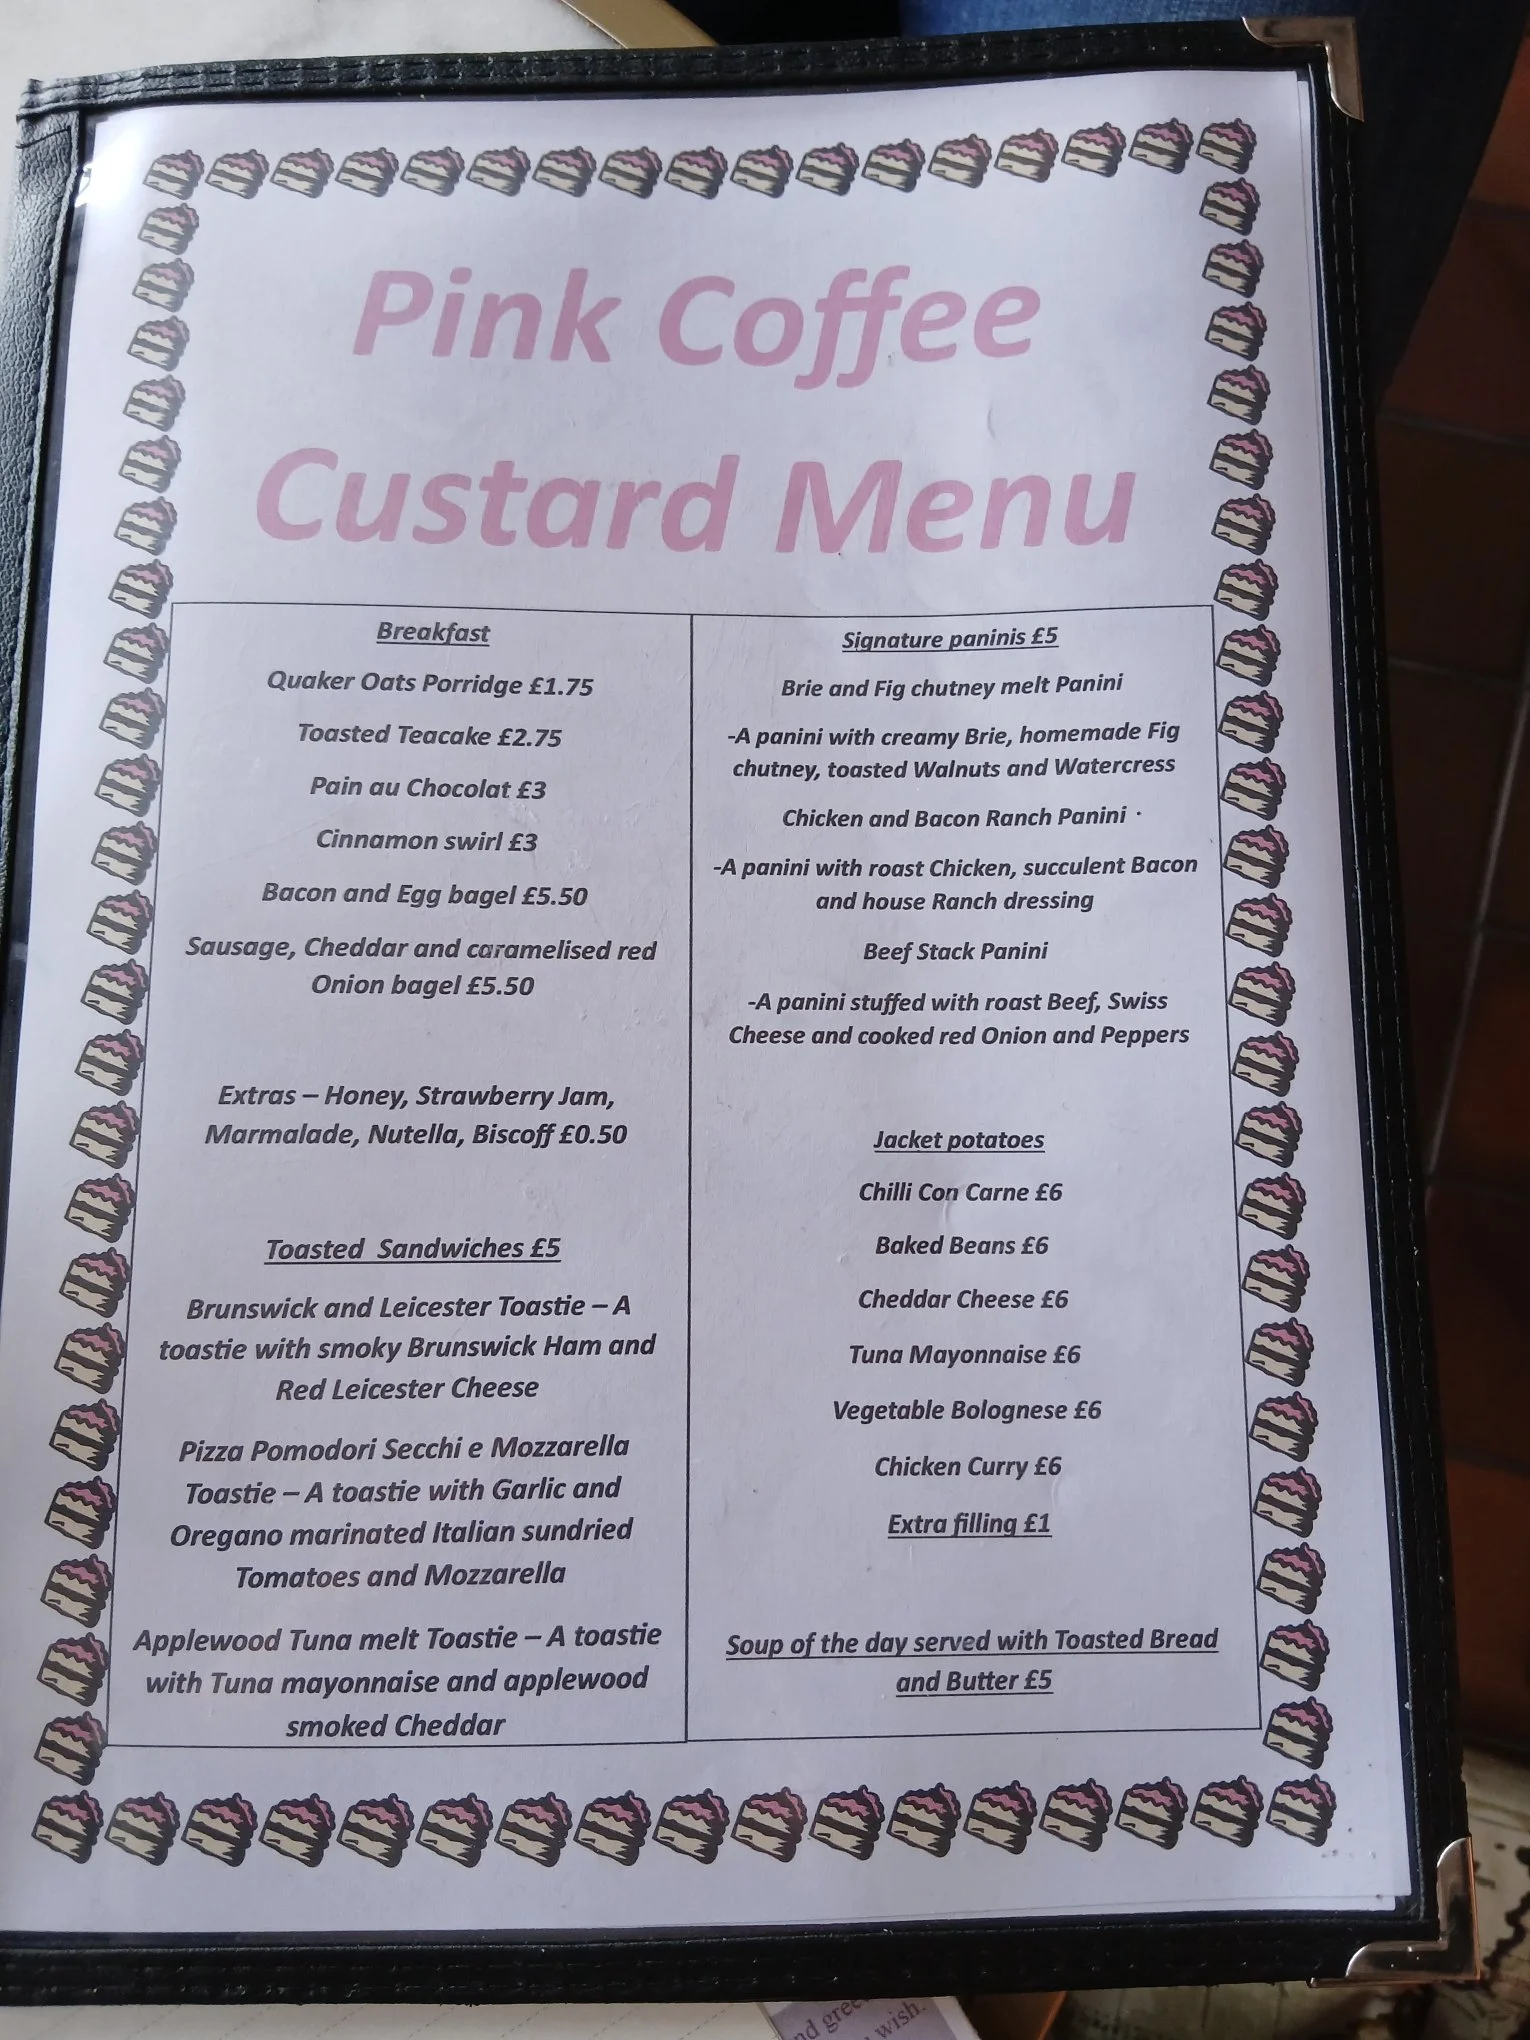 Pink Coffee
Custard Menu
Breakfast
Quaker Oats Porridge £1.75
Toasted Teacake £2.75
Pain au Chocolat £3
Cinnamon swirl £3
Bacon and Egg bagel £5.50
Sausage, Cheddar and caramelised red
Onion bagel £5.50
Extras – Honey, Strawberry Jam,
Marmalade, Nutella, Biscoff £0.50
Toasted Sandwiches £5
Brunswick and Leicester Toastie – A
toastie with smoky Brunswick Ham and
Red Leicester Cheese
Pizza Pomodori Secchi e Mozzarella
Toastie – A toastie with Garlic and
Oregano marinated Italian sundried
Tomatoes and Mozzarella
Applewood Tuna melt Toastie – A toastie
with Tuna mayonnaise and applewood
smoked Cheddar
Signature paninis £5
Brie and Fig chutney melt Panini
-A panini with creamy Brie, homemade Fig
chutney, toasted Walnuts and Watercress
Chicken and Bacon Ranch Panini
-A panini with roast Chicken, succulent Bacon
and house Ranch dressing
Beef Stack Panini
-A panini stuffed with roast Beef, Swiss
Cheese and cooked red Onion and Peppers
Jacket potatoes
Chilli Con Carne £6
Baked Beans £6
Cheddar Cheese £6
Tuna Mayonnaise £6
Vegetable Bolognese £6
Chicken Curry £6
Extra filling £1
Soup of the day served with Toasted Bread
and Butter £5
wish.